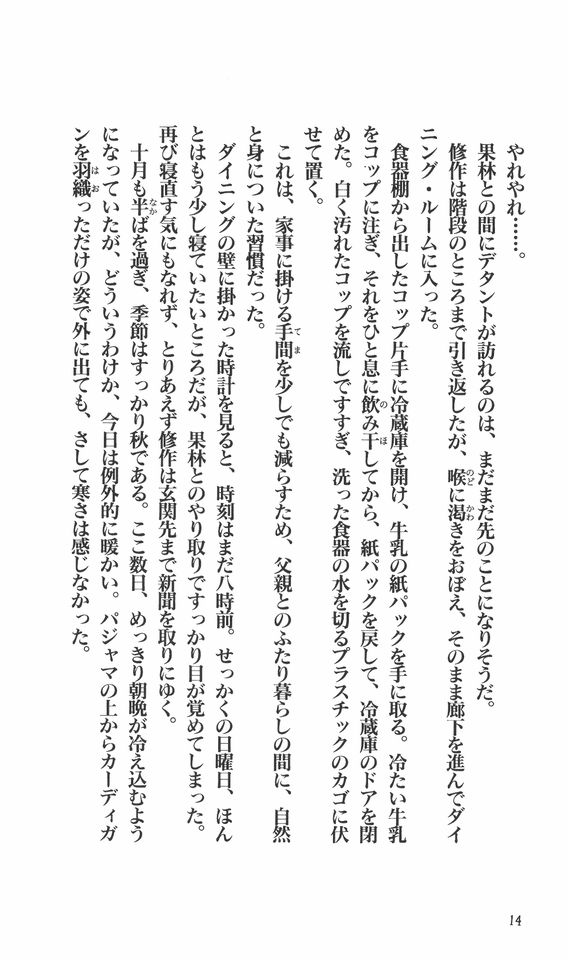 やれやれ……。
果林との間にデタントが訪れるのは、まだまだ先のことになりそうだ。
修作は階段のところまで引き返したが、喉に渇きをおぼえ、そのまま廊下を進んでダイ
ニング・ルームに入った。
食器棚から出したコップ片手に冷蔵庫を開け、牛乳の紙パックを手に取る。冷たい牛乳
をコップに注ぎ、それをひと息に飲み干してから、紙パックを戻して、冷蔵庫のドアを閉
めた。白く汚れたコップを流しですすぎ、洗った食器の水を切るプラスチックのカゴに伏
せて置く。
これは、家事に掛ける手間を少しでも減らすため、父親とのふたり暮らしの間に、自然
と身についた習慣だった。
ダイニングの壁に掛かった時計を見ると、時刻はまだ八時前。せっかくの日曜日、ほん
とはもう少し寝ていたいところだが、果林とのやり取りですっかり目が覚めてしまった。
再び寝直す気にもなれず、とりあえず修作は玄関先まで新聞を取りにゆく。
十月も半ばを過ぎ、季節はすっかり秋である。ここ数日、めっきり朝晩が冷え込むよう
になっていたが、どういうわけか、今日は例外的に暖かい。パジャマの上からカーディガ
ンを羽織っただけの姿で外に出ても、さして寒さは感じなかった。
14